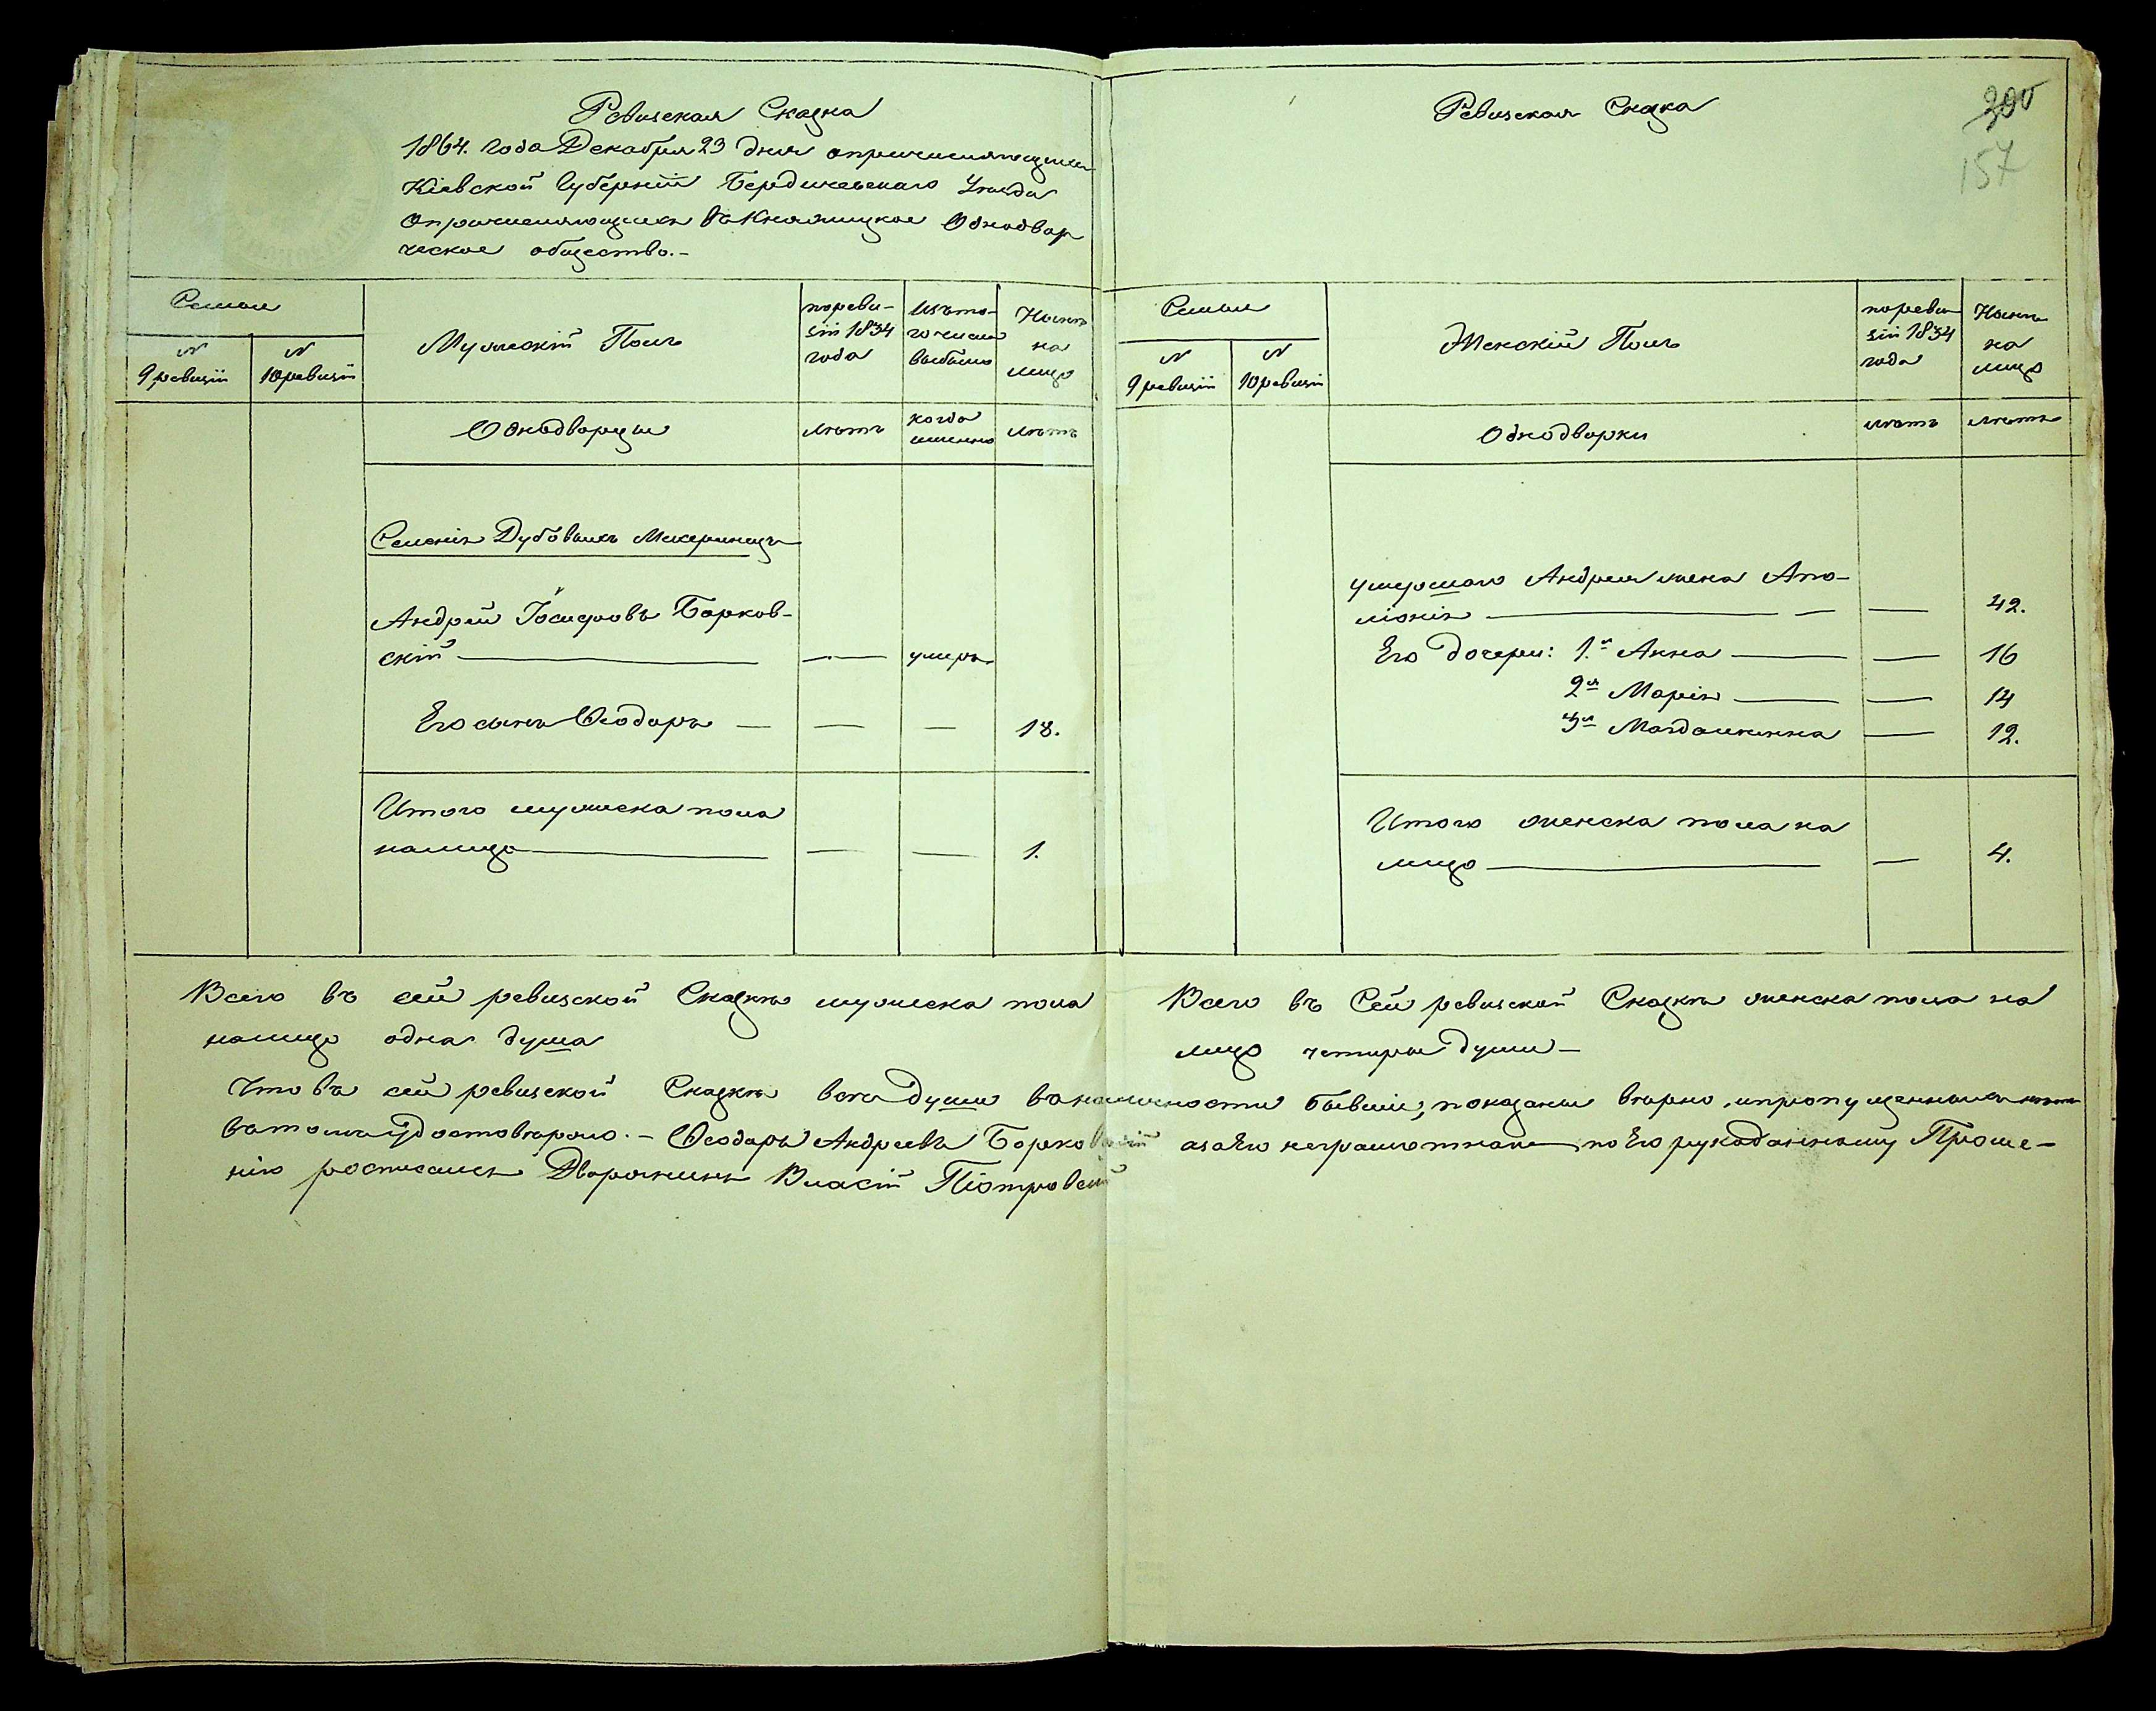 Ревизская Сказка
1864. года Декабря 23 дня опричисляющимся
Кіевской Губерніи Бердичевскаго Уѣзда
опричисляющимся въ Княжицкое Однодвор
ческое общество.-
Семьи
№ 9 ревизіи
№ 10 ревизіи
Мужскій Полъ
поревизіи 1834 года
Изъ того числа выбыло
Нынѣ на лицо
Однодворцы
лѣтъ
когда именно
лѣтъ
Селенія Дубовыхъ Мекеринецъ
Андрей Іосифовъ Борков-
скій — — умеръ
Его сынъ Ѳеодоръ — — — 18.
Итого мужеска пола
налицо — — — 1.
Всего въ сей ревизской Сказкѣ мужеска пола
налицо одна душа
Ревизская Сказка
300
157
Семьи
№ 9 ревизіи
№ 10 ревизіи
Женскій Полъ
поревизіи 1834 года
Нынѣ на лицо
Однодворки
лѣтъ
лѣтъ
умершаго Андрея жена Апо-
лонія — — — 42.
Его дочери: 1.я Анна — — 16
2я Марія — — 14
3я Магдалинна — 12.
Итого женска пола на
лицо — — 4.
Всего въ Сей ревизской Сказкѣ женска пола на
лицо четыры души —
Что въ сей ревизской Сказкѣ всѣ души въ наличности бывшіе, показаны вѣрно, и пропущенныхъ нѣтъ
въ томъ удостовѣряю. - Ѳеодоръ Андреевъ Борковскій а за Его неграмотнаго по Его рукоданному Проше-
нію росписался Дворянинъ Власій Піотровскій